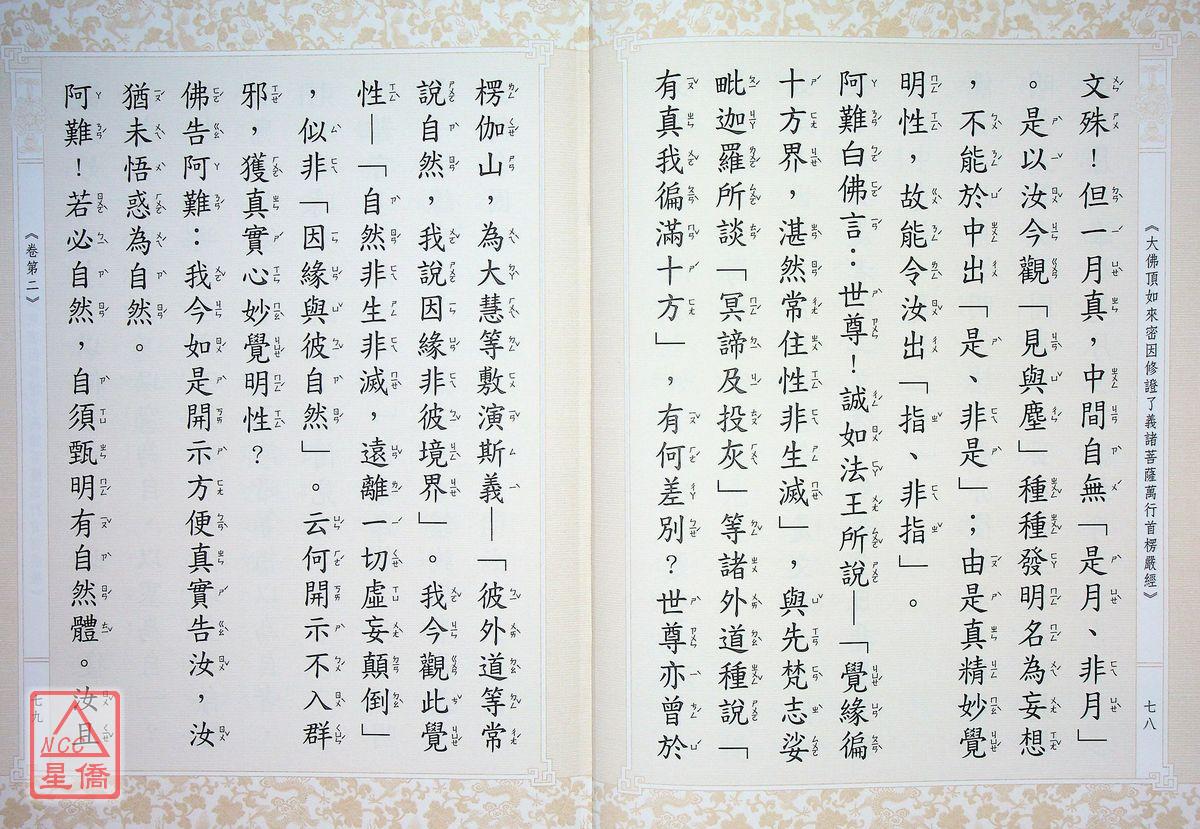 《大佛頂如來密因修證了義諸菩薩萬行首楞嚴經》
七八
文殊！但一月真，中間自無「是月、非月」
。是以汝今觀「見與塵」種種發明名為妄想
，不能於中出「是、非是」；由是真精妙覺
明性，故能令汝出「指、非指」。
阿難白佛言：世尊！誠如法王所說—「覺緣徧
十方界，湛然常住性非生滅」，與先梵志娑
毗迦羅所談「冥諦及投灰」等諸外道種說「
有真我徧滿十方」，有何差別？世尊亦曾於
楞伽山，為大慧等敷演斯義—「彼外道等常
說自然，我說因緣非彼境界」。我今觀此覺
性—「自然非生非滅，遠離一切虛妄顛倒」
，似非「因緣與彼自然」。云何開示不入群
邪，獲真實心妙覺明性？
佛告阿難：我今如是開示方便真實告汝，汝
猶未悟惑為自然。
阿難！若必自然，自須甄明有自然體。汝且
《卷第二》
七九
NCC
星僑